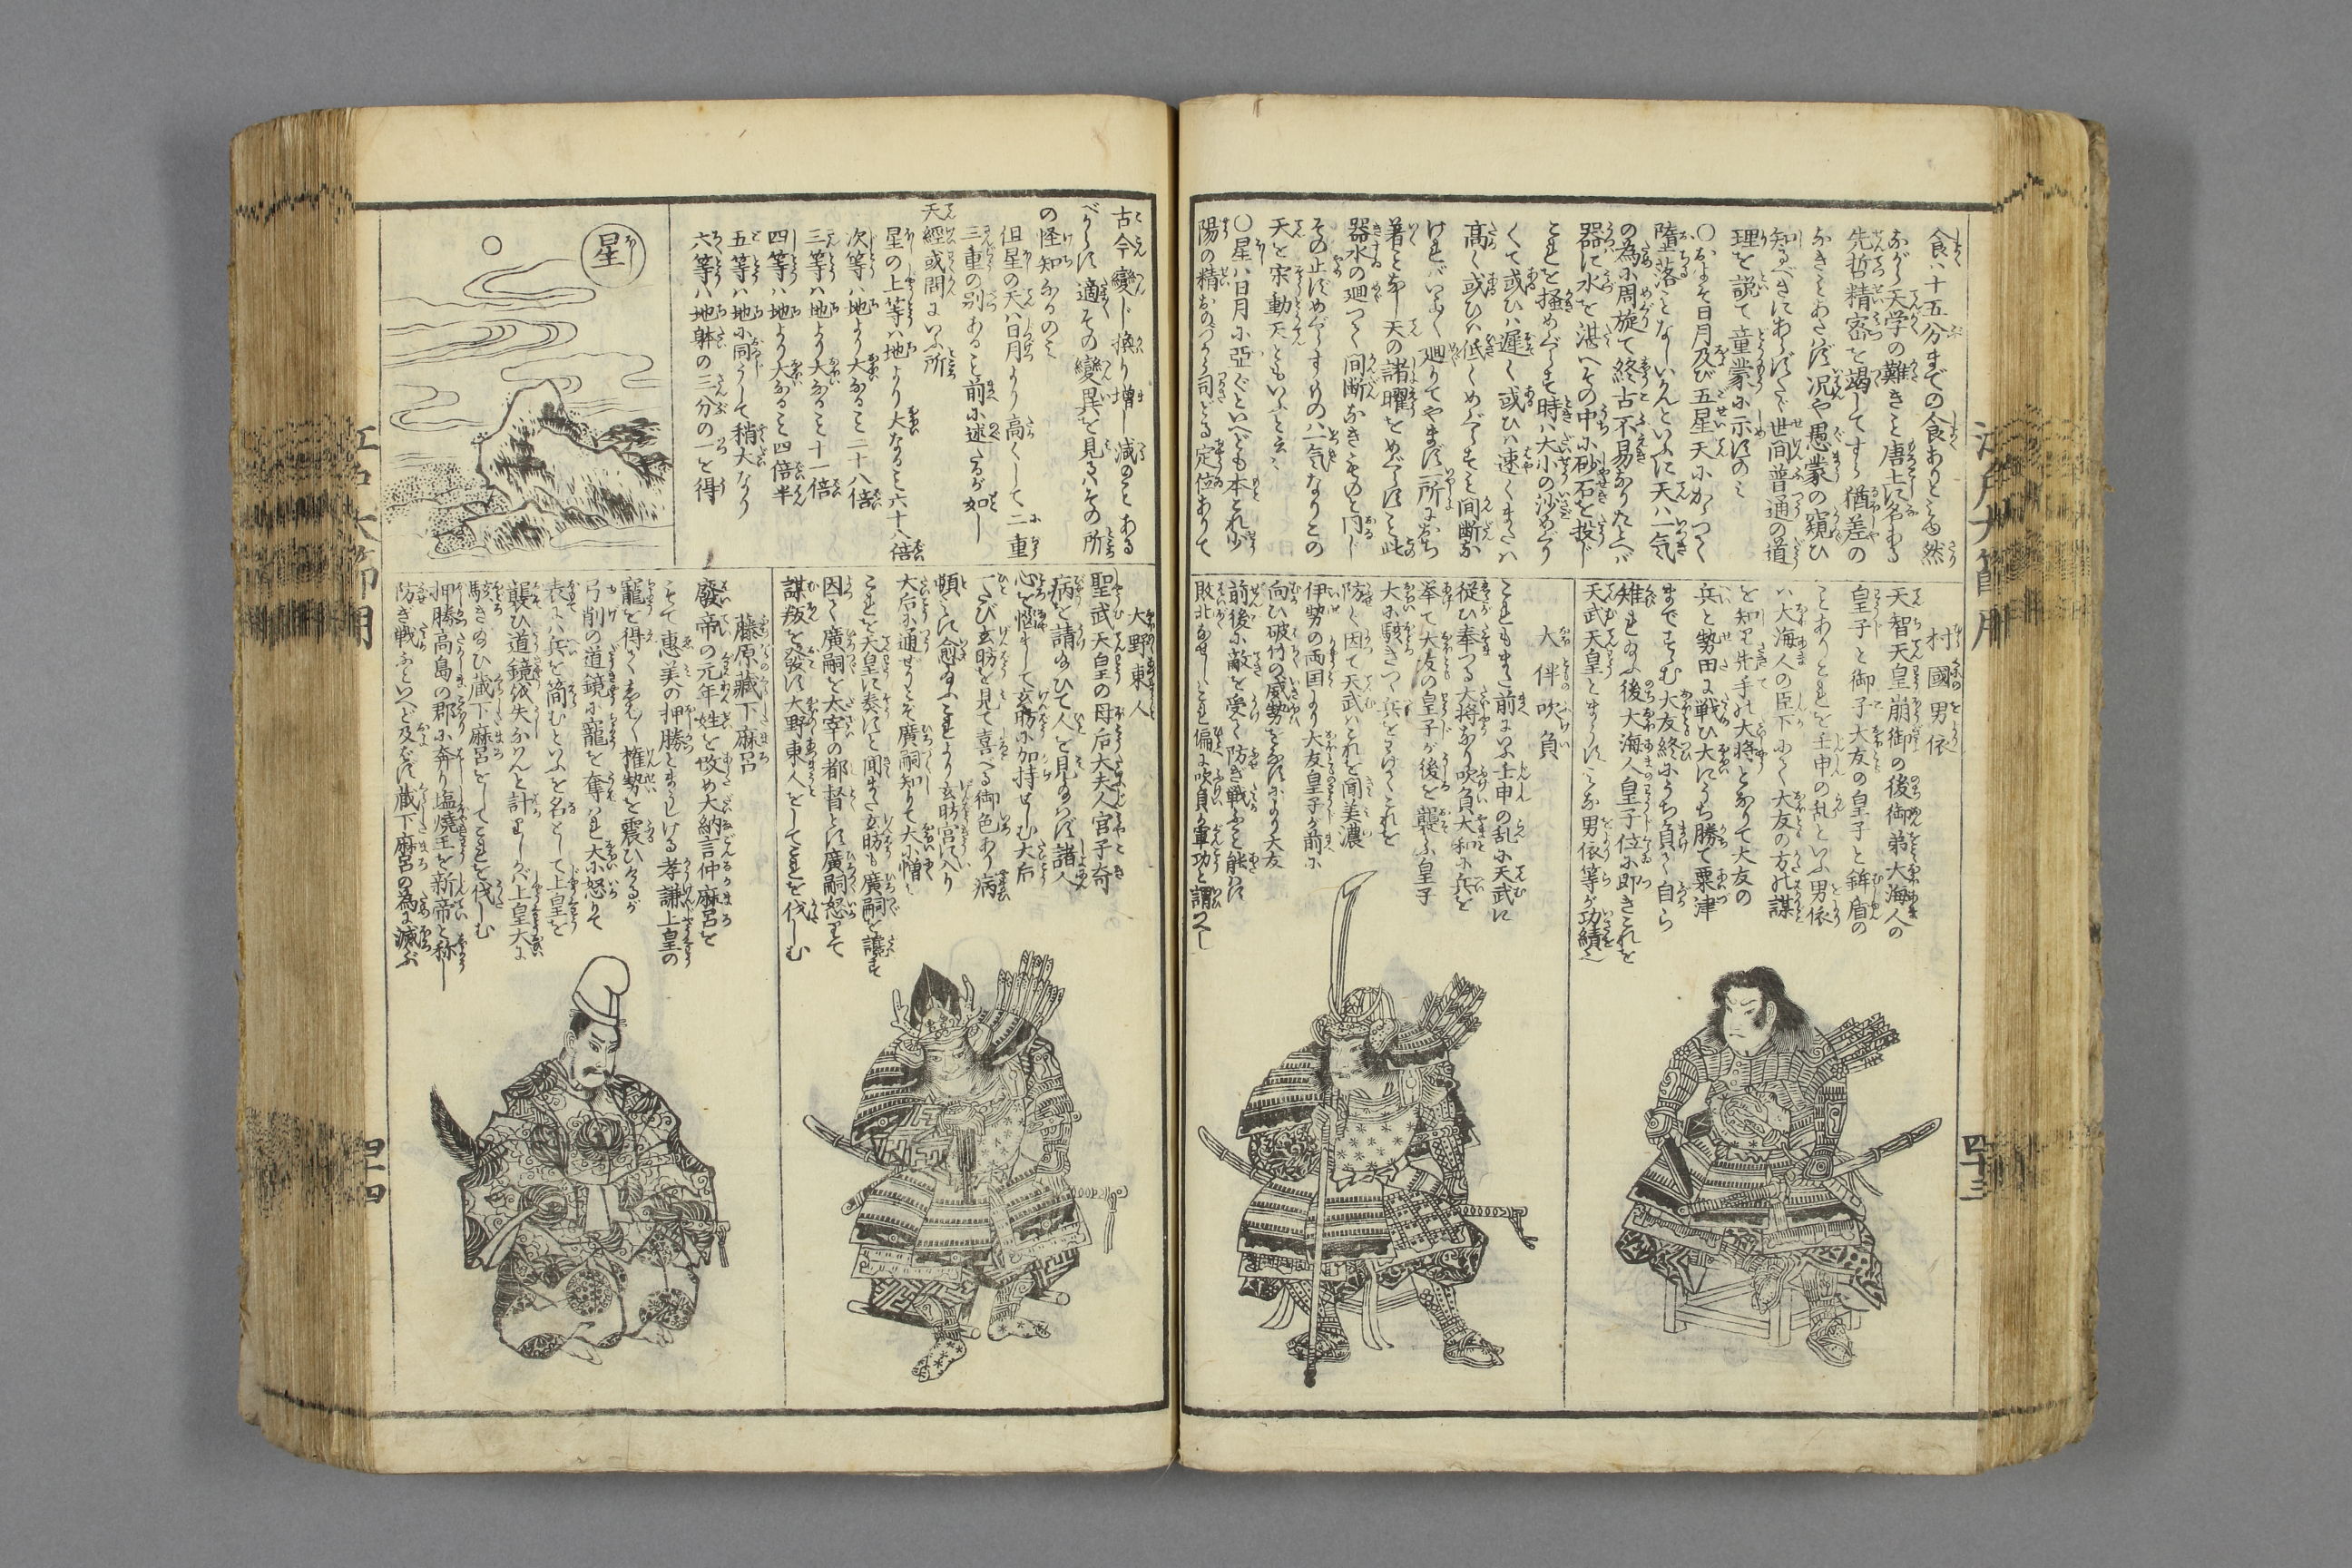 食ハ十五分までの食ありとこゑ然り
ながら天学の難きこと唐土に名ある
先哲精密を竭してすら猶差の
なきことあたはず況や愚蒙の窺ひ
知るべきにあらずたゞ世間普通の道
理を説て童蒙に示すのミ
〇およそ日月及び五星天にかゝつて
墮落ことなしいかんといふに天ハ一気
の為に周旋て終古不易なりたとへバ
器に水を湛へその中に砂石を投じ
これを掻めぐらす時ハ大小の沙めぐり
くて或ひハ遲く或ひハ速くまたハ
高く或ひハ低くめぐらすこと間断な
けれバいよく廻りてやまず一所におち
著となし天の諸曜をめぐらすこと此
器水の廻つて间断なきものと同じ
その止ずめぐらすものハ一気なりこの
天を宗動天ともいふと云々
〇星ハ日月に亞ぐといへども本これ少
陽の精おのづから司どる定位ありて
村國男依
天智天皇崩御の後御弟大海人の
皇子と御子大友の皇子と鉾盾の
ことありこれを壬申の乱といふ男依
ハ大海人の臣下にて大友の方の謀
を知り先手の大将となりて大友の
兵と勢田に戦ひ大にうち勝て粟津
まですゝむ大友終にうち負て自ら
雉れ給ふ後大海人皇子位に即きこれを
天武天皇とまうすこれ男依等が功績也
大伴吹負
これもまた前にいふ壬申の乱に天武に
從ひ奉つる大将なり吹負大和に兵を
挙て大友の皇子が後を襲ふ皇子
大に駭きつゝ兵をわけてこれを
防ぐ因て天武ハこれを聞美濃
伊勢の両国より大友皇子が前に
向ひ破竹の威勢をなすにより大友
前後に敵を受て防ぎ戦ふこと能はず
敗北なせしこれ偏に吹負が軍功と謂つべし
江戸大節用
四十三
古今變じ換り増し減のことある
べからず適その變異を見るハその所
の怪知なるのミ
但星の天ハ日月より高くして二重
三重の別あること前に述たるが如し
天經或問にいふ所
星の上等ハ地より大なること六十八倍
次等ハ地より大なること二十八倍
三等ハ地より大なること十一倍
四等ハ地より大なること四倍半
五等ハ地に同うして稍大なり
六等ハ地躰の三分の一を得
星
大野東人
聖武天皇の母后大夫人宮子奇
病を請給ひて人を見給はず諸人
心を惱まして玄昉に加持せしむ大后
ひとたび玄昉を見て喜べる御色あり病
頓に愈給ふこれより玄昉宮に入り
大后に通ぜりとぞ廣嗣知りて大に憎ミ
これを天皇に奏すと聞また玄昉も廣嗣を讒す
因て廣嗣を太宰の都督とす廣嗣怒りて
謀叛を發す大野東人をしてこれを伐しむ
藤原蔵下麻呂
廢帝の元年姓を改め大納言仲麻呂を
して惠美の押勝とまうしける孝謙上皇の
寵を得て専ら權勢を震ひけるが
弓削の道鏡に寵を奪はれ大に怒りて
表に兵を简むといふを名として上皇を
襲ひ道鏡を失なはんと計りしが上皇大に
駭き給ひ蔵下麻呂をしてこれを伐しむ
押勝高島の郡に奔り塩燒王を新帝と称し
防ぎ戦ふといへど及ばず蔵下麻呂の為に滅ぶ
江戸大節用
四十四